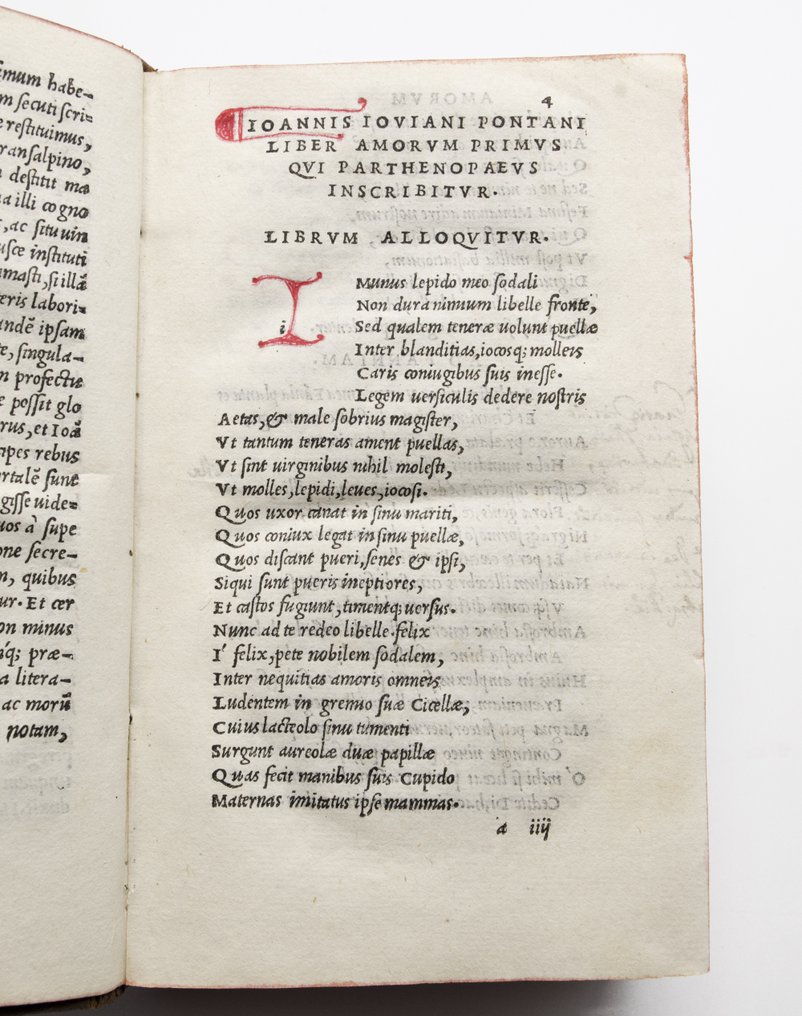 imum habe-
m secuti scri=
e restituimus,
ransalpino,
destitit ma
a illi cogno
, ac situ uin
usce instituti
masti, si illã
eris labori=
andẽ ipsam
te, singula-
n profectu
e possit glo
rus, et Ioã
ipes rebus
ortalẽ sunt
gisse uide=
uos à supe
one secre-
m, quibus
ur. Et cer
on minus
q́; præ-
a litera-
ac morũ
notam,
4
IOANNIS IOVIANI PONTANI
LIBER AMORVM PRIMVS
QVI PARTHENOPAEVS
INSCRIBITVR.
LIBRVM ALLOQVITVR.
I i Munus lepido meo sodali
Non dura nimium libelle fronte,
Sed qualem teneræ uolunt puellæ
Inter blanditias, iocosq; molleis
Caris coniugibus suis inesse.
Legem uersiculis dedere nostris
Aetas, & male sobrius magister,
Vt tantum teneras ament puellas,
Vt sint uirginibus nihil molesti,
Vt molles, lepidi, leues, iocosi.
Quos uxor canat in sinu mariti,
Quos coniux legat in sinu puellæ,
Quos discant pueri, senes & ipsi,
Siqui sunt pueris ineptiores,
Et castos fugiunt, timentq; uersus.
Nunc ad te redeo libelle felix
I' felix, pete nobilem sodalem,
Inter nequitias amoris omneis
Ludentem in gremio suæ Cicellæ,
Cuius lacteolo sinu tumenti
Surgunt aureolæ duæ papillæ
Quas fecit manibus suis Cupido
Maternas imitatus ipse mammas.
a iiij